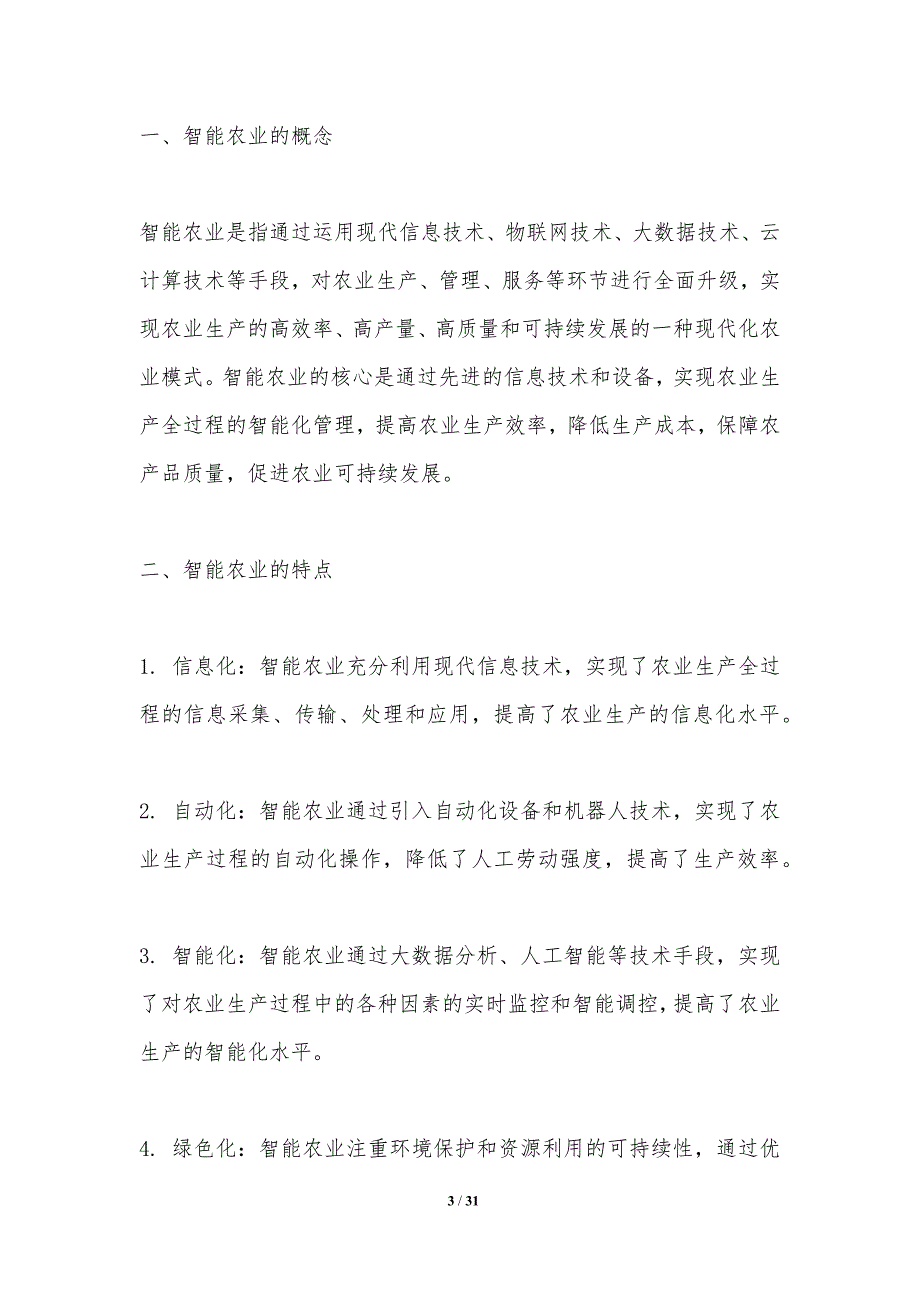 一、智能农业的概念
智能农业是指通过运用现代信息技术、物联网技术、大数据技术、云
计算技术等手段，对农业生产、管理、服务等环节进行全面升级，实
现农业生产的高效率、高产量、高质量和可持续发展的一种现代化农
业模式。智能农业的核心是通过先进的信息技术和设备，实现农业生
产全过程的智能化管理，提高农业生产效率，降低生产成本，保障农
产品质量，促进农业可持续发展。
二、智能农业的特点
1. 信息化：智能农业充分利用现代信息技术，实现了农业生产全过
程的信息采集、传输、处理和应用，提高了农业生产的信息化水平。
2. 自动化：智能农业通过引入自动化设备和机器人技术，实现了农
业生产过程的自动化操作，降低了人工劳动强度，提高了生产效率。
3. 智能化：智能农业通过大数据分析、人工智能等技术手段，实现
了对农业生产过程中的各种因素的实时监控和智能调控，提高了农业
生产的智能化水平。
4. 绿色化：智能农业注重环境保护和资源利用的可持续性，通过优
3 / 31